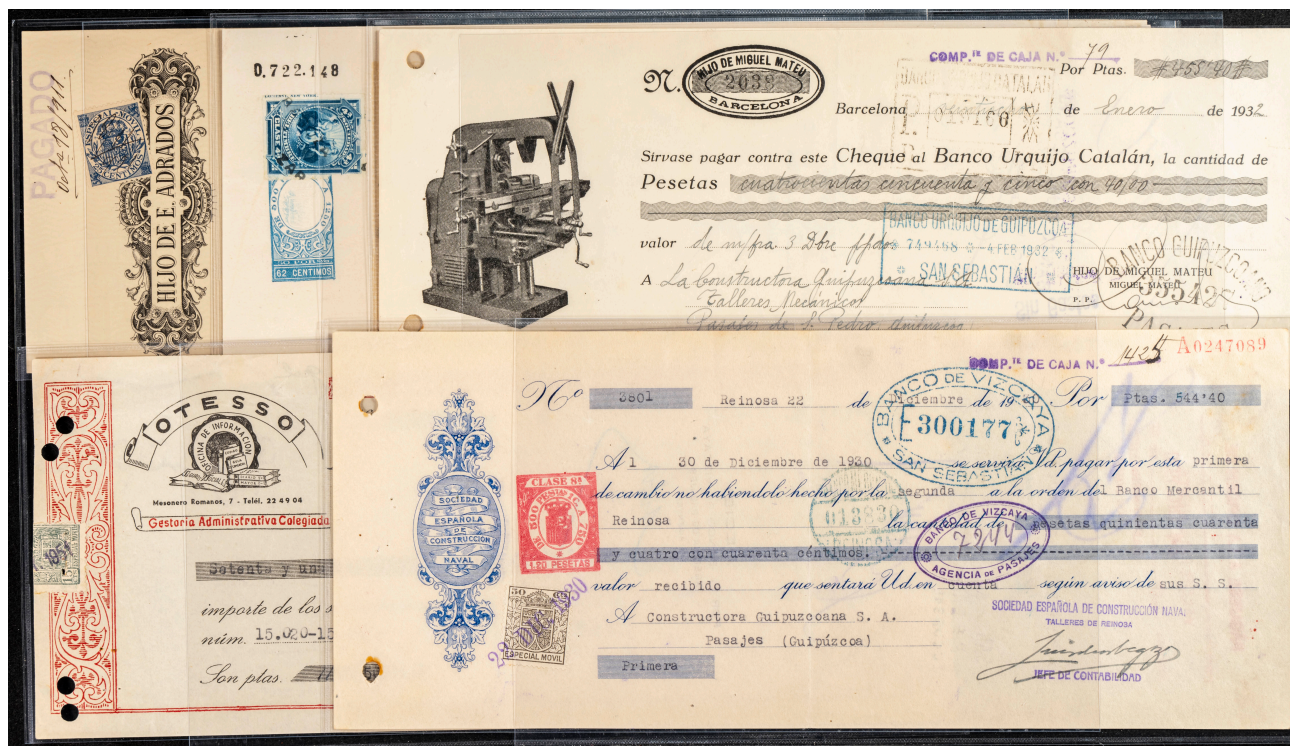 PAGADO
Octe 18/911
ESPECIAL MOVIL
HIJO DE E. ADRADOS
0.722.148
CLASE
1250
62 CENTIMOS
COMP.TE DE CAJA N.º 79
N. HIJO DE MIGUEL MATEU
2039
BARCELONA
Por Ptas. #455'40#
Barcelona de Enero de 1932
Sirvase pagar contra este Cheque al Banco Urquijo Catalán, la cantidad de
Pesetas cuatrocientas cincuenta y cinco con 40/00
BANCO URQUIJO DE GUIPUZCOA
749468 - 4 FEB 1932
SAN SEBASTIÁN
valor de m/fra 3 Dbre ppdo
HIJO DE MIGUEL MATEU
MIGUEL MATEU
P. P.
BANCO GUIPUZCOANO
A La Constructora Guipuzcoana
Talleres Mecánicos
Pasajes de S. Pedro, Guipuzcoa
OTESSO
OFICINA DE INFORMACION
Mesonero Romanos, 7 - Teléf. 22 49 04
Gestoría Administrativa Colegiada
Setenta y un
importe de los s
núm. 15.020-15
Son ptas.
COMP.TE DE CAJA N.º 1425
A0247089
Nº 3801 Reinosa 22 de Diciembre de 19 Por Ptas. 544'40
BANCO DE VIZCAYA
E 300177
SAN SEBASTIAN
Al 30 de Diciembre de 1930 se servirá Vd. pagar por esta primera
de cambio no habiéndolo hecho por la segunda a la orden del Banco Mercantil
Reinosa la cantidad de pesetas quinientas cuarenta
y cuatro con cuarenta céntimos.
valor recibido que sentará Ud. en cuenta según aviso de sus S. S.
A Constructora Guipuzcoana S. A.
Pasajes (Guipúzcoa)
Primera
SOCIEDAD
ESPAÑOLA
DE
CONSTRUCCIÓN
NAVAL
CLASE 8ª
1,20 PESETAS
ESPECIAL MOVIL
28 DIC 1930
013830
BANCO DE VIZCAYA
7244
AGENCIA DE PASAJES
SOCIEDAD ESPAÑOLA DE CONSTRUCCIÓN NAVAL
TALLERES DE REINOSA
JEFE DE CONTABILIDAD